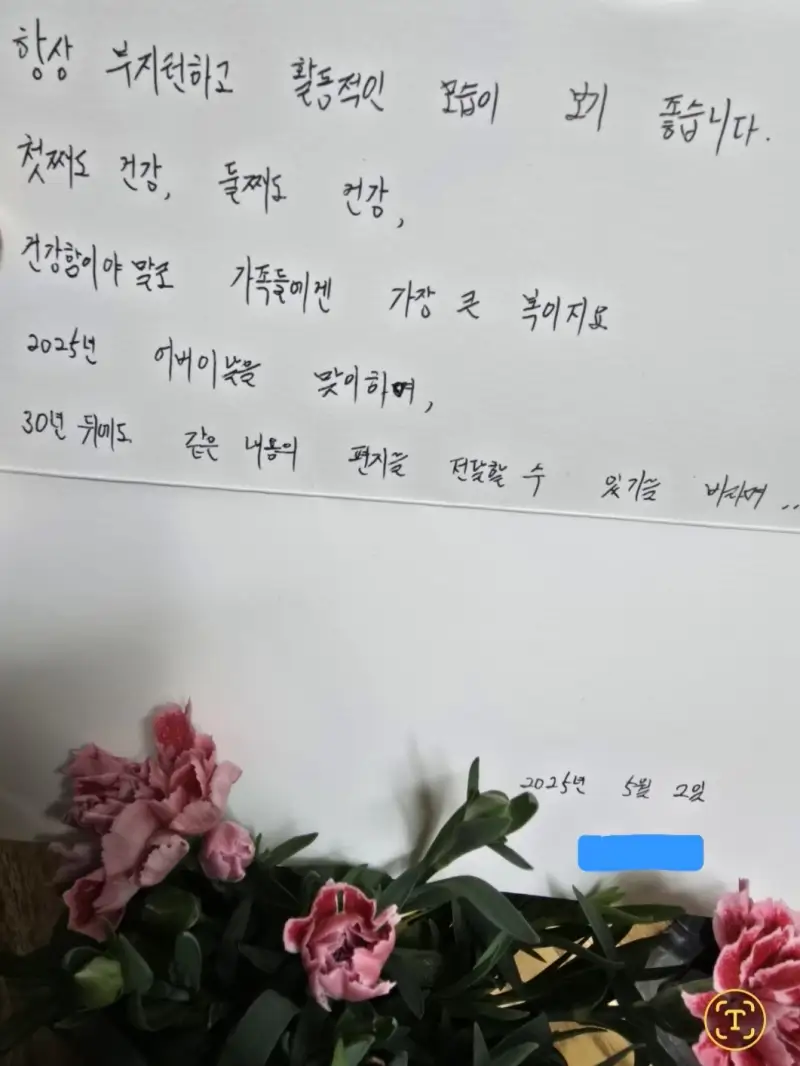 항상 부지런하고 활동적인 모습이 보기 좋습니다.
첫째도 건강, 둘째도 건강,
건강함이야 말로 가족들에겐 가장 큰 복이지요
2025년 어버이날을 맞이하며,
30년 뒤에도 같은 내용의 편지를 전달할 수 있기를 바라며 ..
2025년 5월 2일